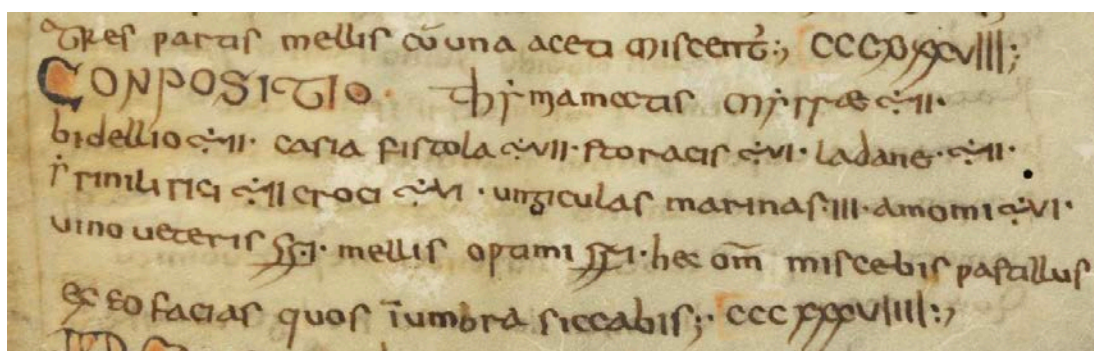 tres partis mellis cū una aceti miscentᷓ:, CCCXXXVIII;
CONPOSITIO. thẏmamectis mẏrre ÷II·
bidellio ÷II· casia fistola ÷VII· storacis ÷VI· ladane· ÷II·
croci ÷VI· ungiculas marinas·III· amomi ÷VI·
vino veteris I· mellis optimi I· hec om̅ miscebis pastillus
ex eo facias quos ī umbra siccabis;· CCCXXXVIIII:,